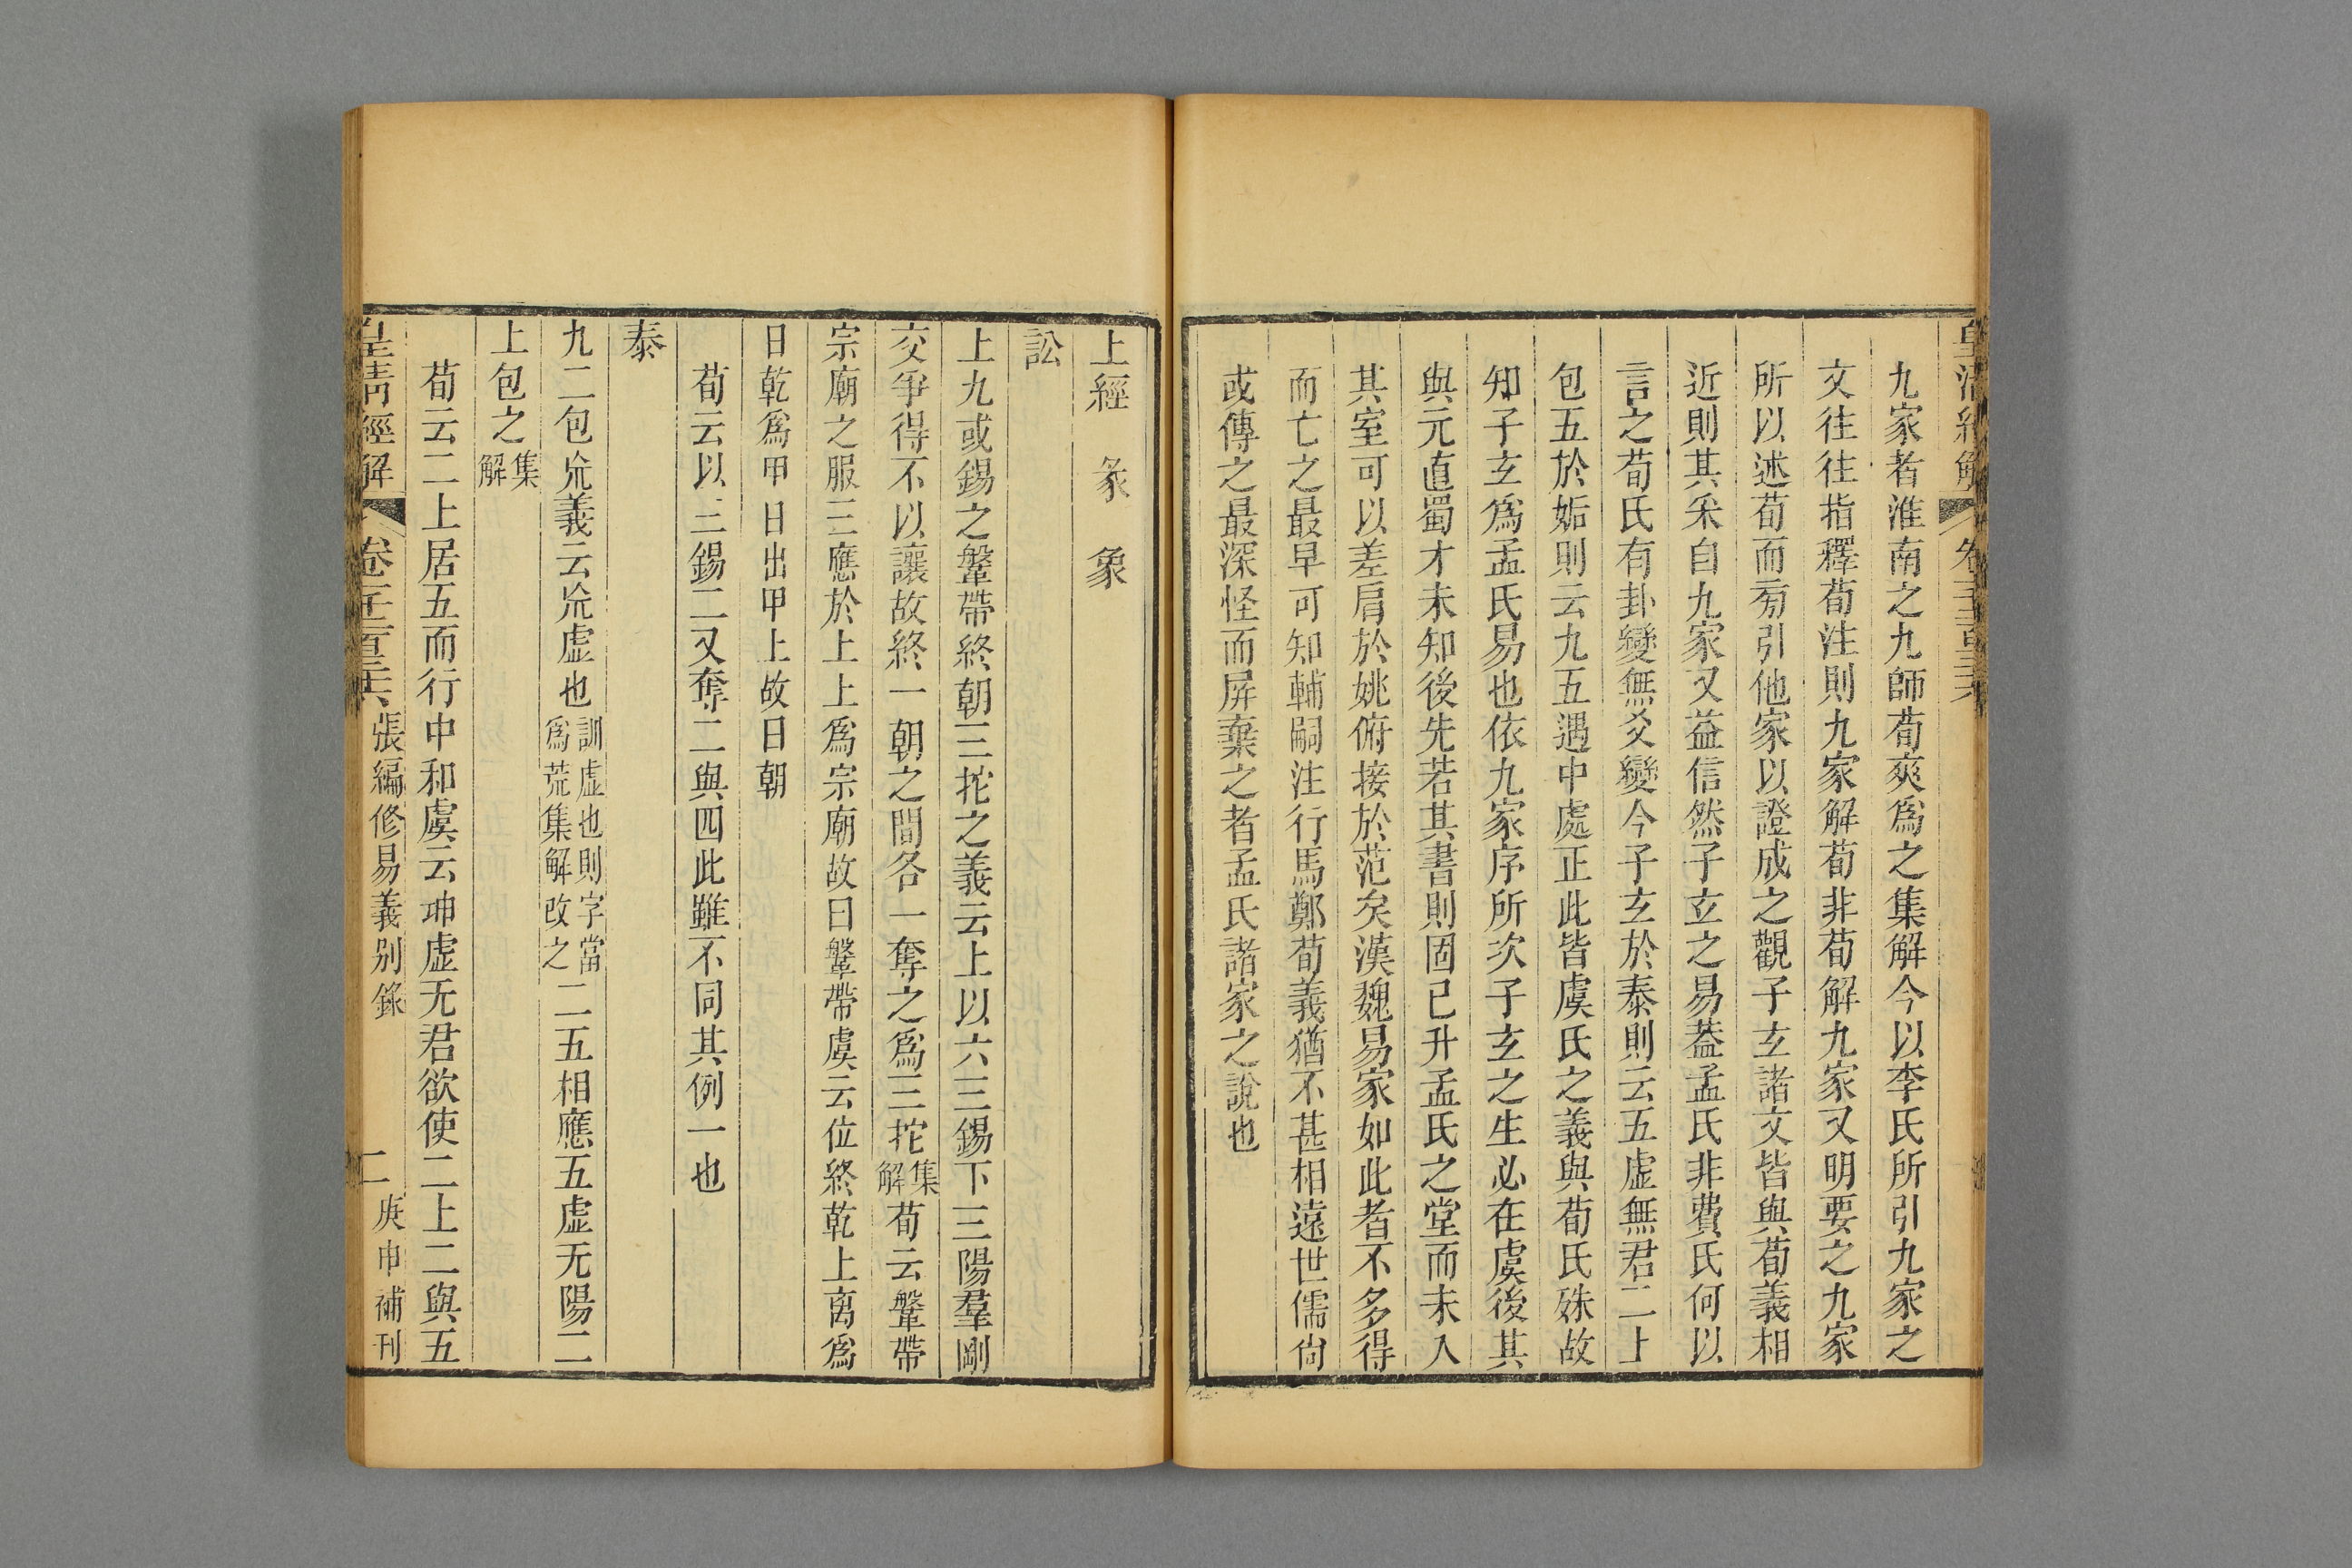 皇清經解
卷一千二百三十六
九家者淮南之九師荀爽爲之集解今以李氏所引九家之
文往往指釋荀注則九家解荀非荀解九家又明要之九家
所以述荀而㫄引他家以證成之觀子玄諸文皆與荀義相
近則其采自九家又益信然子玄之易葢孟氏非費氏何以
言之荀氏有卦變無爻變今子玄於泰則云五虛無君二上
包五於姤則云九五遇中處正此皆虞氏之義與荀氏殊故
知子玄爲孟氏易也依九家序所次子玄之生必在虞後其
與元直蜀才未知後先若其書則固已升孟氏之堂而未入
其室可以差肩於姚俯接於范矣漢魏易家如此者不多得
而亡之最早可知輔嗣注行馬鄭荀義猶不甚相遠世儒尙
或傳之最深怪而屏棄之者孟氏諸家之說也
上經　彖　象
訟
上九或錫之鞶帶終朝三拕之義云上以六三錫下三陽羣剛
交爭得不以讓故終一朝之間各一奪之爲三拕集解荀云鞶帶
宗廟之服三應於上上爲宗廟故曰鞶帶虞云位終乾上离爲
日乾爲甲日出甲上故曰朝
荀云以三錫二又奪二與四此雖不同其例一也
泰
九二包巟義云巟虛也訓虛也則字當爲荒集解改之二五相應五虛无陽二
上包之集解
荀云二上居五而行中和虞云坤虛无君欲使二上二與五
皇清經解
卷一千二百三十六
張編修易義别錄
二
庚申補刊